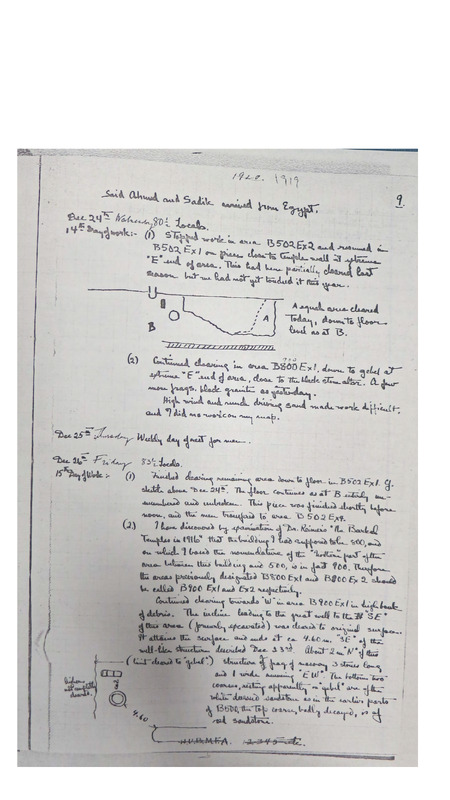 1919
9.
Said Ahmed and Sadik arrived from Egypt.
Dec 24th Wednesday, 80 Locals.
14th Day of work:- (1) Stopped work in area B502 Ex2 and resumed in
B502 Ex1 on piece close to temple wall at extreme
"E" end of area. This had been partially cleared last
season but we had not yet touched it this year.
A
B
A equals area cleared
today, down to floor
level as at B.
(2) Continued clearing in area B800 Ex1, down to gebel at
extreme "E" end of area, close to the black stone altar. A few
more frags. black granite as yesterday.
High wind and much driving sand made work difficult,
and I did no work on my map.
Dec 25th Thursday Weekly day of rest for men.
Dec 26th Friday Locals.
15th Day of Work:- (1) Finished clearing remaining area down to floor in B502 Ex1. Cf.
sketch above Dec 24th. The floor continues as at B entirely un-
encumbered and unbroken. This piece was finished shortly before
noon, and the men transferred to area B502 Ex4.
(2) I have discovered by examination of Dr. Reisner's "The Barkal
Temples in 1916" that the building I had supposed to be 500, and
on which I based the nomenclature of the "bottom" part of the
area between this building and 500, is in fact 900. Therefore
the areas previously designated B800 Ex1 and B800 Ex 2 should
be called B900 Ex1 and Ex2 respectively.
Continued clearing towards "W" in area B900 Ex1 in high bank
of debris. The incline leading to the great well to the "SE"
of this area (formerly excavated) was cleared to original surface.
It attains the surface and ends at ca 4.60 m. "SE" of the
well-like structure described Dec 23rd. About 2 m "N" of this
(but cleared to "gebel") structure of frag of masonry 3 stones long
and 1 wide running "EW". The bottom two
courses, resting apparently on "gebel" are of the
white dressed sandstone as in the earlier parts
of B500, the top course, badly decayed, is of
red sandstone.
4.60